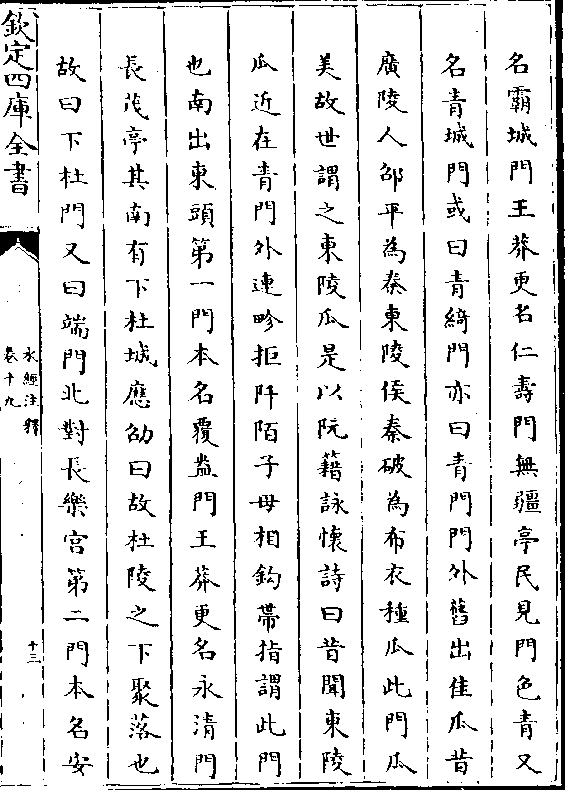 名霸城門王莽更名仁壽門無疆亭民見門色青又
名青城門或曰青綺門亦曰青門門外舊出佳瓜昔
廣陵人邵平為秦東陵侯秦破為布衣種瓜此門瓜
美故世謂之東陵瓜是以阮籍詠懷詩曰昔聞東陵
瓜近在青門外連畛拒阡陌子母相鈎帶指謂此門
也南出東頭第一門本名覆盎門王莽更名永清門
長茂亭其南有下杜城應劭曰故杜陵之下聚落也
故曰下杜門又曰端門北對長樂宮第二門本名安
欽定四庫全書
水經注釋
卷十九
十三